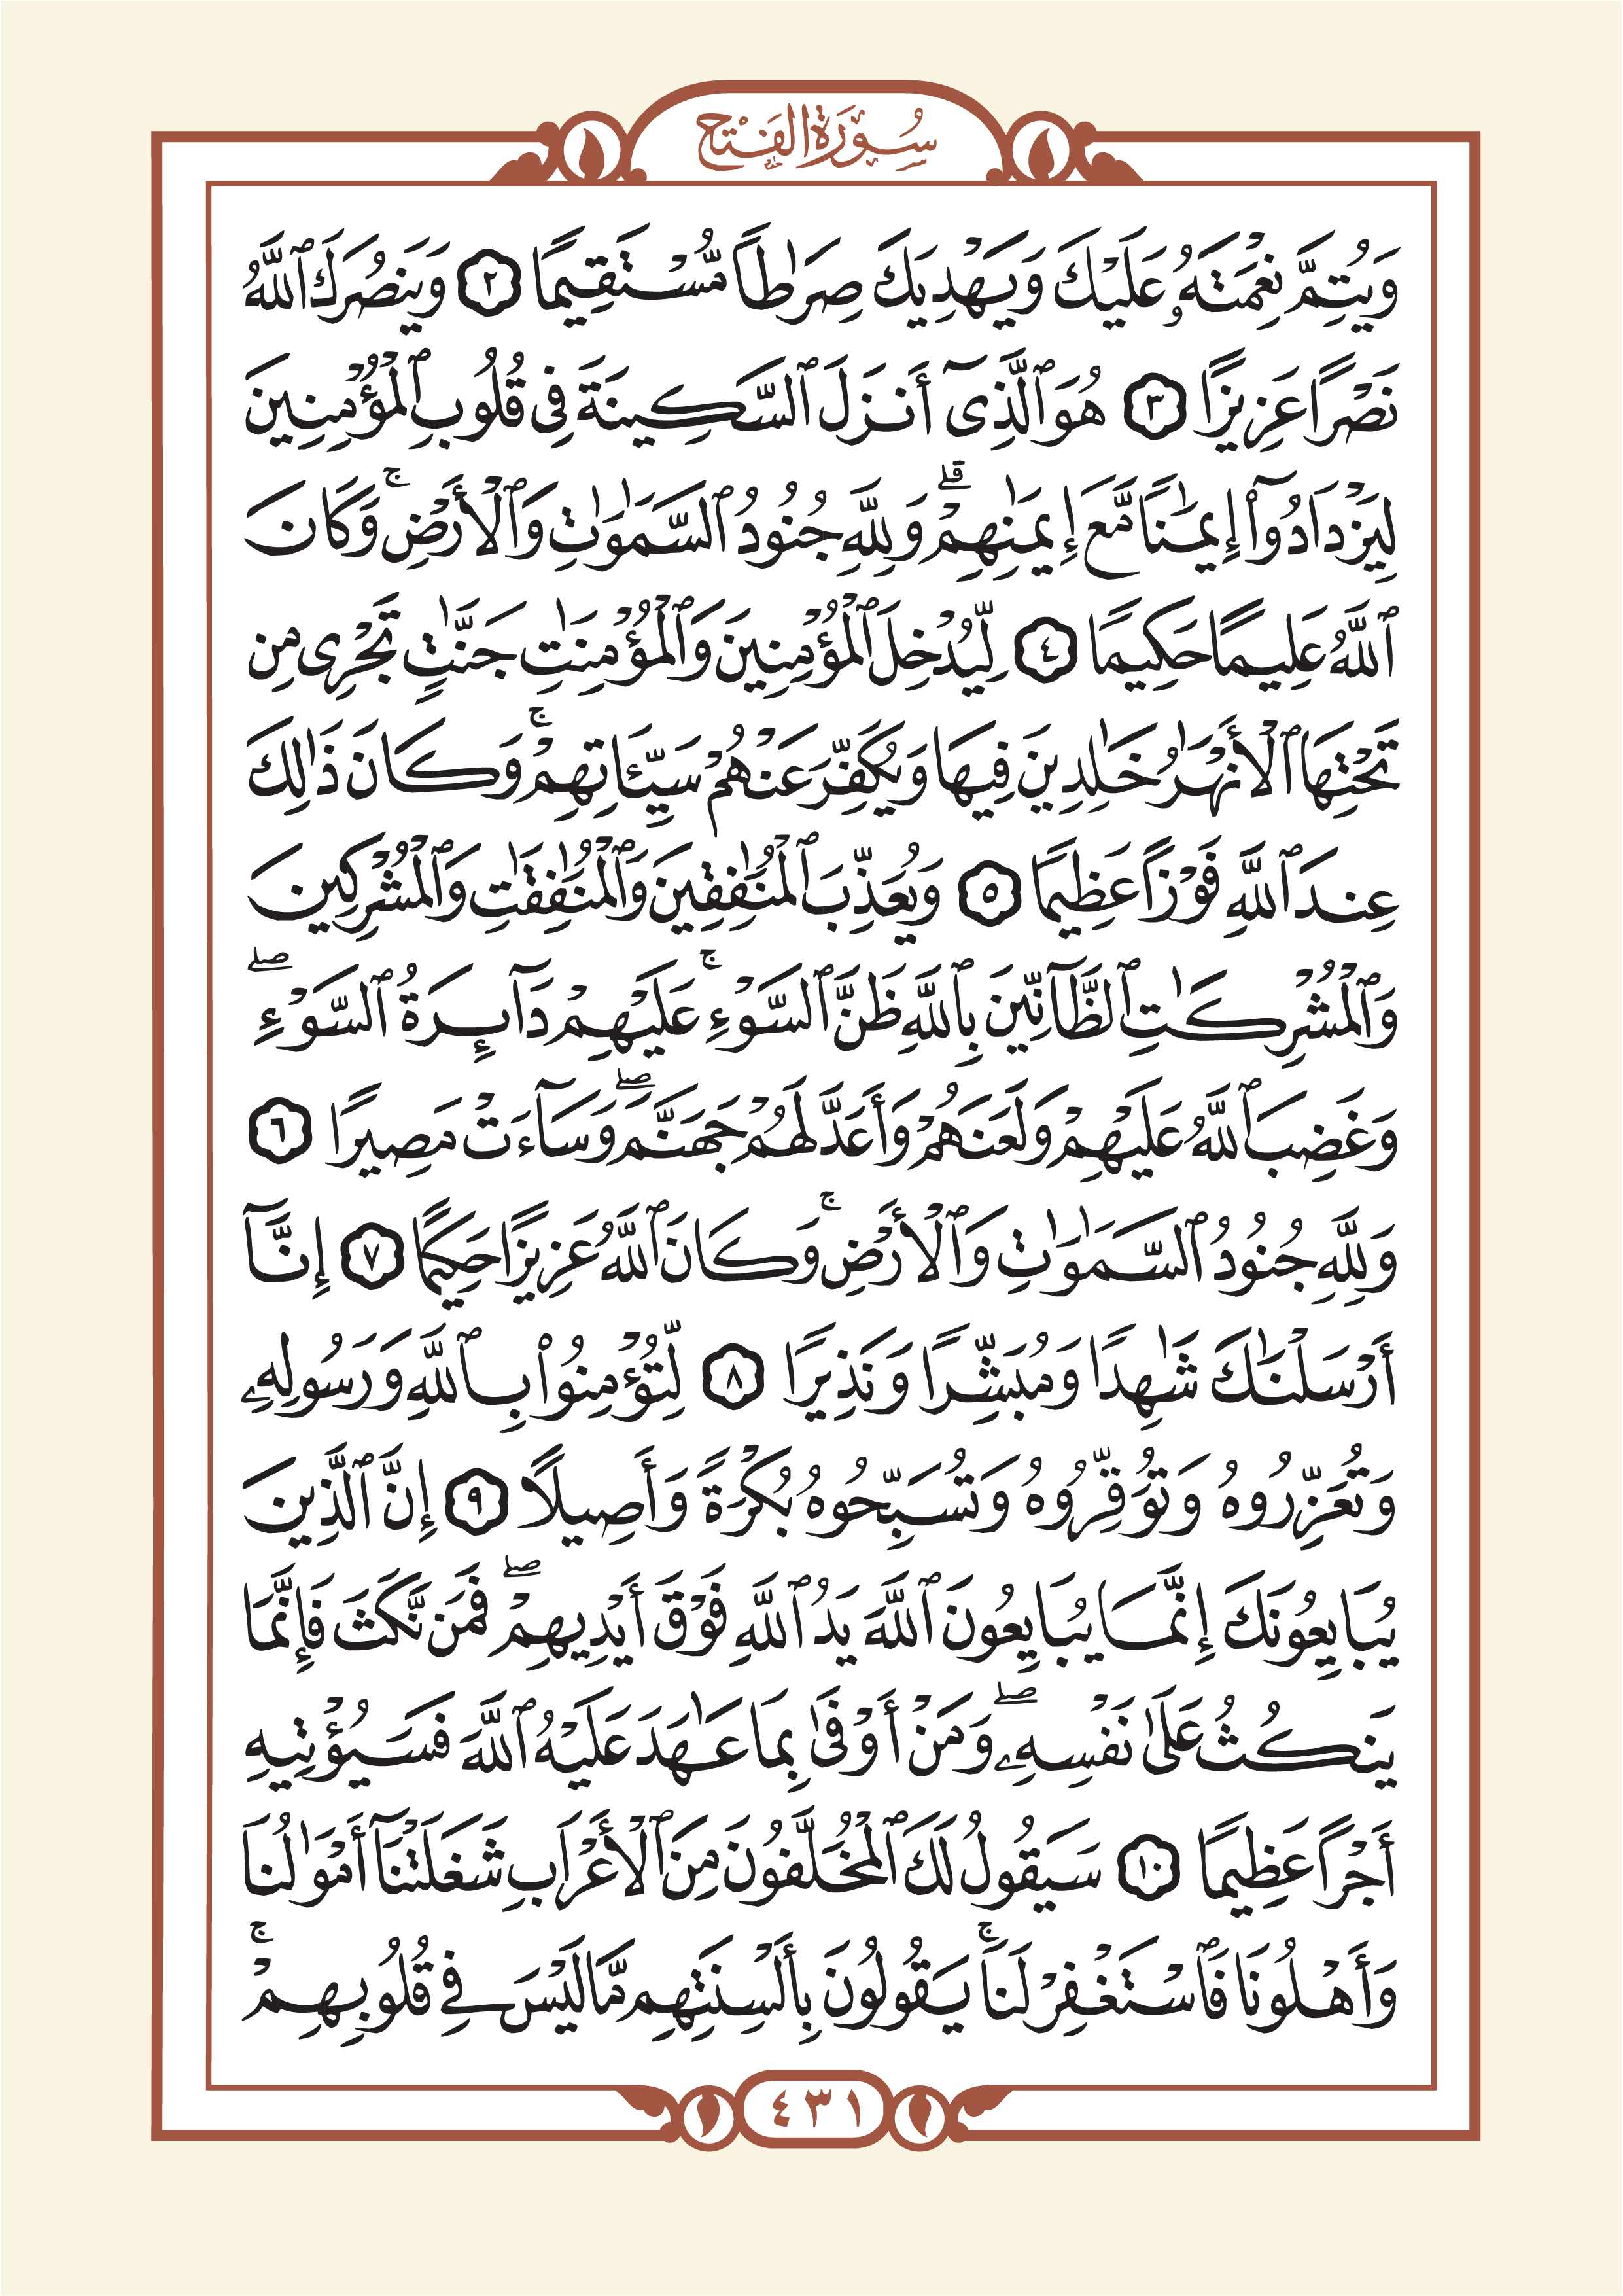 سُورَةُ الفَتْحِ
وَيُتِمَّ نِعْمَتَهُۥ عَلَيْكَ وَيَهْدِيَكَ صِرَٰطًا مُّسْتَقِيمًا ٢ وَيَنصُرَكَ ٱللَّهُ
نَصْرًا عَزِيزًا ٣ هُوَ ٱلَّذِىٓ أَنزَلَ ٱلسَّكِينَةَ فِى قُلُوبِ ٱلْمُؤْمِنِينَ
لِيَزْدَادُوٓا۟ إِيمَٰنًا مَّعَ إِيمَٰنِهِمْ ۗ وَلِلَّهِ جُنُودُ ٱلسَّمَٰوَٰتِ وَٱلْأَرْضِ ۚ وَكَانَ
ٱللَّهُ عَلِيمًا حَكِيمًا ٤ لِّيُدْخِلَ ٱلْمُؤْمِنِينَ وَٱلْمُؤْمِنَٰتِ جَنَّٰتٍ تَجْرِى مِن
تَحْتِهَا ٱلْأَنْهَٰرُ خَٰلِدِينَ فِيهَا وَيُكَفِّرَ عَنْهُمْ سَيِّـَٔاتِهِمْ ۚ وَكَانَ ذَٰلِكَ
عِندَ ٱللَّهِ فَوْزًا عَظِيمًا ٥ وَيُعَذِّبَ ٱلْمُنَٰفِقِينَ وَٱلْمُنَٰفِقَٰتِ وَٱلْمُشْرِكِينَ
وَٱلْمُشْرِكَٰتِ ٱلظَّآنِّينَ بِٱللَّهِ ظَنَّ ٱلسَّوْءِ ۚ عَلَيْهِمْ دَآئِرَةُ ٱلسَّوْءِ ۖ
وَغَضِبَ ٱللَّهُ عَلَيْهِمْ وَلَعَنَهُمْ وَأَعَدَّ لَهُمْ جَهَنَّمَ ۖ وَسَآءَتْ مَصِيرًا ٦
وَلِلَّهِ جُنُودُ ٱلسَّمَٰوَٰتِ وَٱلْأَرْضِ ۚ وَكَانَ ٱللَّهُ عَزِيزًا حَكِيمًا ٧ إِنَّآ
أَرْسَلْنَٰكَ شَٰهِدًا وَمُبَشِّرًا وَنَذِيرًا ٨ لِّتُؤْمِنُوا۟ بِٱللَّهِ وَرَسُولِهِۦ
وَتُعَزِّرُوهُ وَتُوَقِّرُوهُ وَتُسَبِّحُوهُ بُكْرَةً وَأَصِيلًا ٩ إِنَّ ٱلَّذِينَ
يُبَايِعُونَكَ إِنَّمَا يُبَايِعُونَ ٱللَّهَ يَدُ ٱللَّهِ فَوْقَ أَيْدِيهِمْ ۖ فَمَن نَّكَثَ فَإِنَّمَا
يَنكُثُ عَلَىٰ نَفْسِهِۦ ۖ وَمَنْ أَوْفَىٰ بِمَا عَٰهَدَ عَلَيْهُ ٱللَّهَ فَسَيُؤْتِيهِ
أَجْرًا عَظِيمًا ١٠ سَيَقُولُ لَكَ ٱلْمُخَلَّفُونَ مِنَ ٱلْأَعْرَابِ شَغَلَتْنَآ أَمْوَٰلُنَا
وَأَهْلُونَا فَٱسْتَغْفِرْ لَنَا ۚ يَقُولُونَ بِأَلْسِنَتِهِم مَّا لَيْسَ فِى قُلُوبِهِمْ ۚ
٤٣١